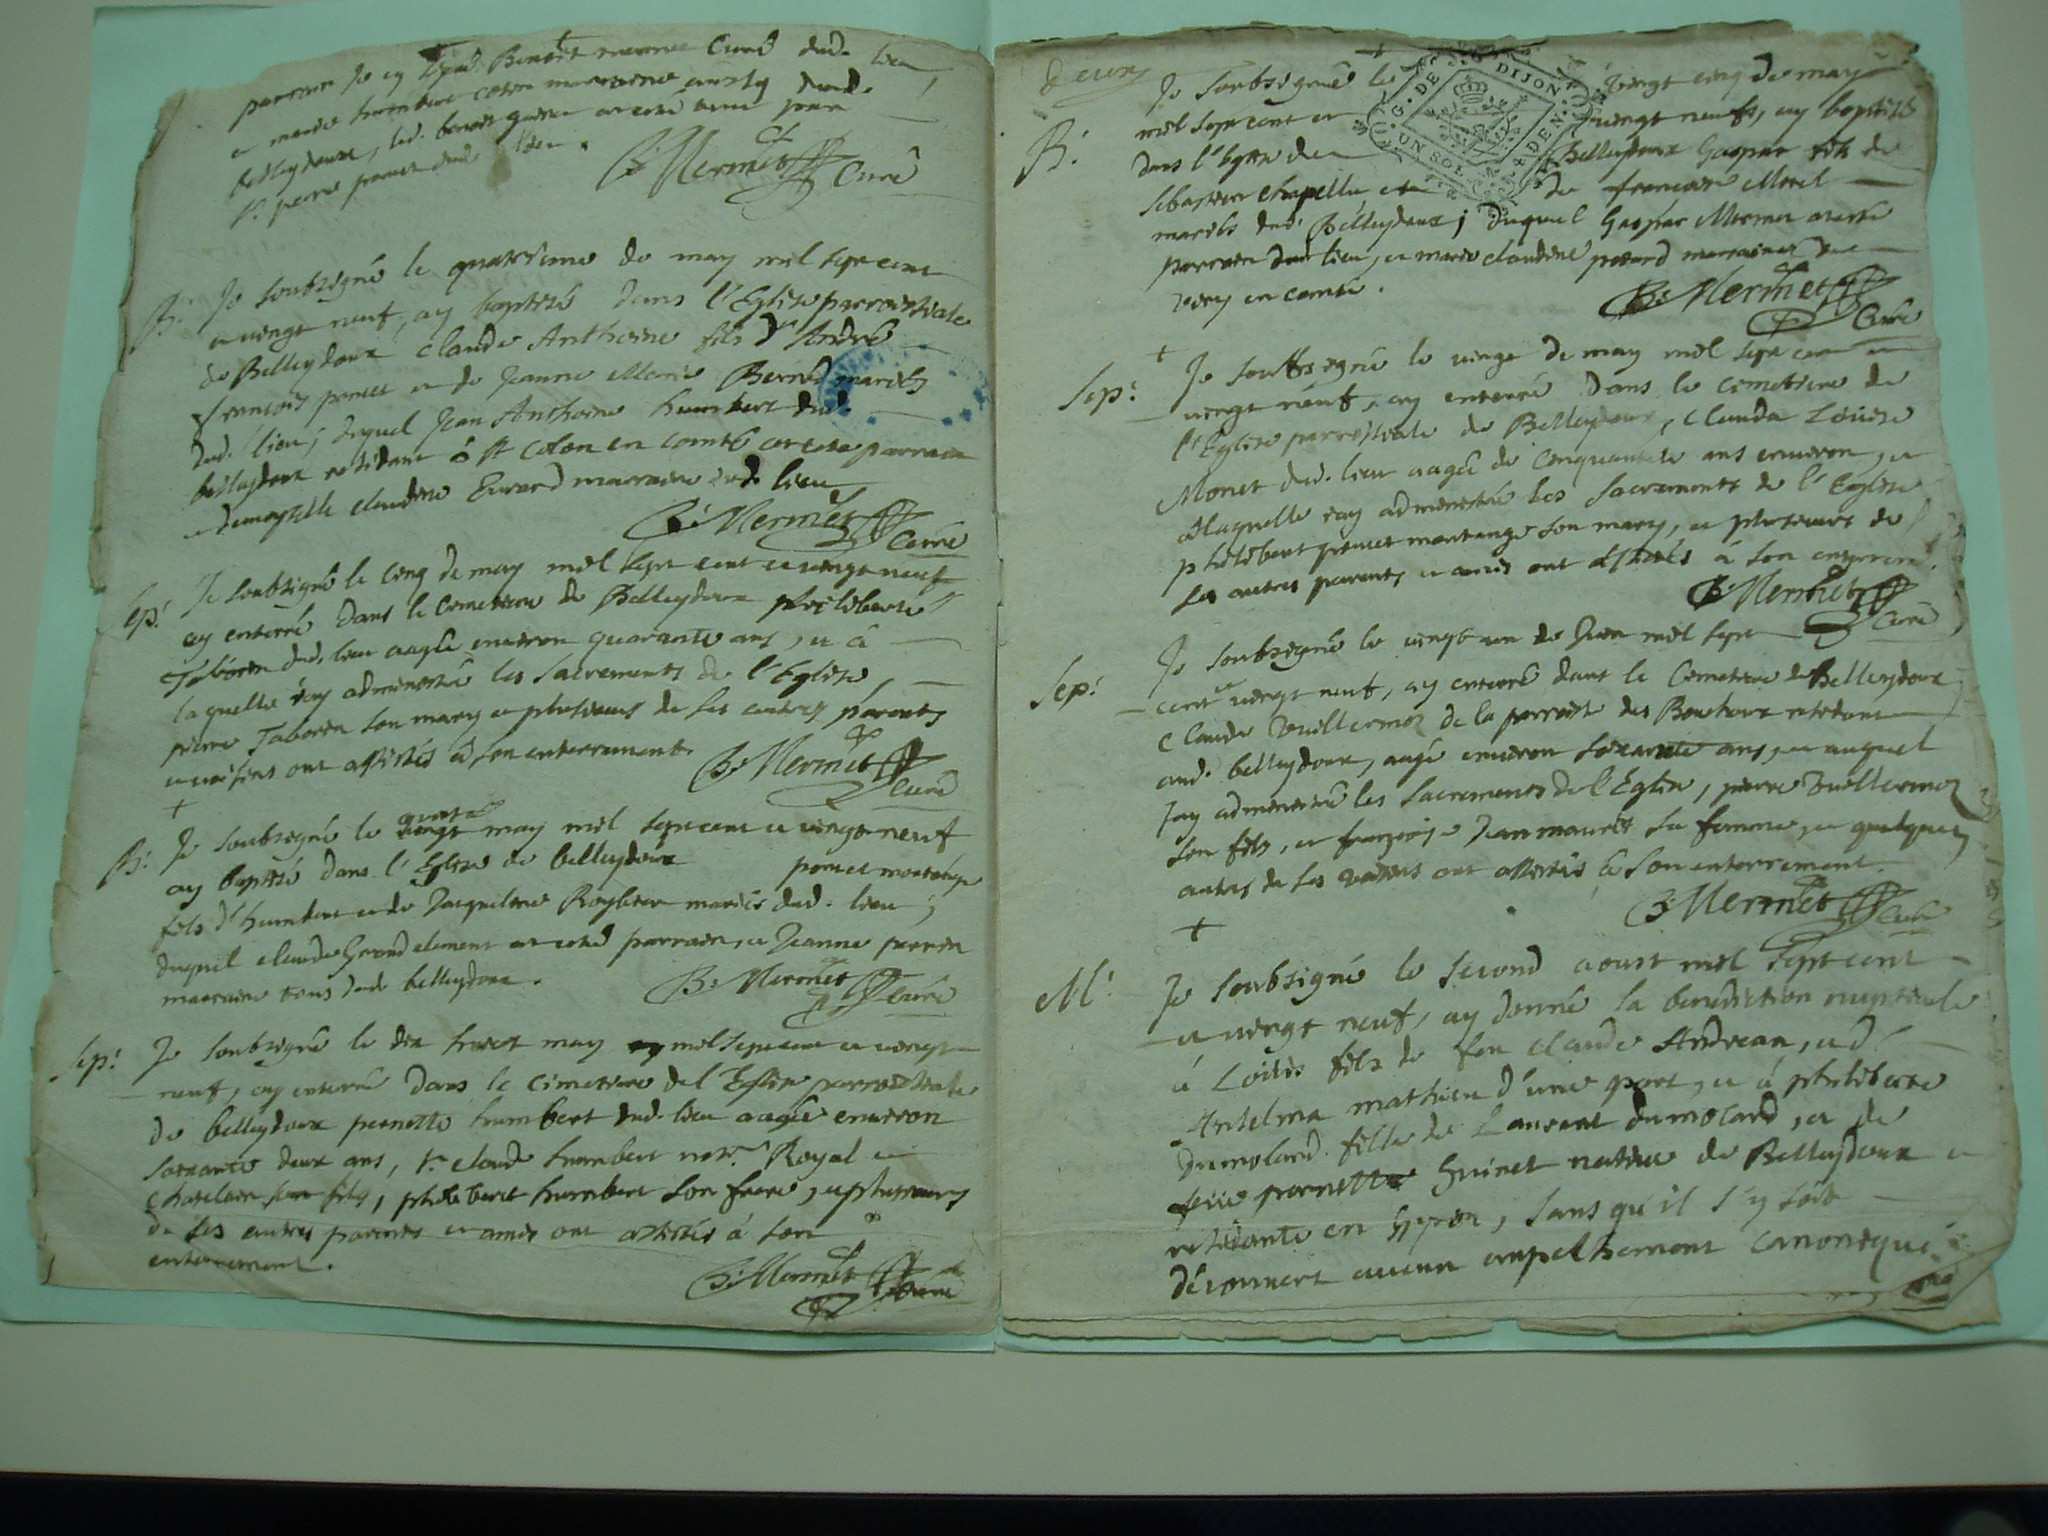 parrain
et marie humbert marraine aussy dud.
belleydoux, led. benoit
B: Mermet Curé
B: Je soubsigné le quatrieme de may mil sept cent
et vingt neuf, ay baptisé dans l'Eglise parroissiale
de Belleydoux Claude Anthoine fils d'André
françois poncet et de Jeanne Marie mariés
dud. lieu, duquel Jean Anthoine humbert dud.
belleydoux residant à st en comté parrain
et damoyselle claudine marraine dud. lieu
B: Mermet Curé
Sep: Je soubsigné le cinq de may mil sept cent et vingt neuf
ay enterré dans le cimetiere de Belleydoux philiberte
Taborin dud. lieu aagée environ quarante ans, et à
laquelle j'ay administré les sacrements de l'Eglise,
pierre Taborin son mary et plusieurs de ses autres parents
et voisins ont assistés à son enterrement.
B: Mermet Curé
+
B: Je soubsigné le may mil sept cent et vingt neuf
ay baptisé dans l'Eglise de belleydoux poncet montange
fils d'humbert et de Jacqueline mariés dud. lieu;
duquel claude Grandclement a esté parrain et Jeanne perrin
marraine tous dud. belleydoux.
B: Mermet curé
Sep: Je soubsigné le dix huict may mil sept cent et vingt
neuf, ay enterré dans le cimetiere de l'Eglise parroissiale
de belleydoux pernette humbert dud. lieu aagée environ
soixante deux ans, sr. claude humbert notre. Royal et
Chatelain son fils, philibert humbert son frere, et plusieurs
de ses autres parents et amis ont assistés à son
enterrement.
B: Mermet Curé
deux
+
G. DE DIJON
UN SOL
B: Je soubsigné le vingt cinq de may
mil sept cent et vingt neuf, ay baptisé
dans l'Eglise de Belleydoux Gaspar fils de
sebastien chapellu et de françoise Morel
mariés dud. Belleydoux; duquel Gaspar Mermet a esté
parrain dud. lieu, et marie claudine marraine de
en comté.
B: Mermet Curé
+
Sep: Je soussigné le vingt de may mil sept cent et
vingt neuf, ay enterré dans le cimetiere de
l'Eglise parroissiale de Belleydoux, Clauda Louise
Monet dud. lieu aagée de cinquante ans environ, et
à laquelle j'ay administré les sacrements de l'Eglise
philibert poncet montange son mary, et plusieurs de
ses autres parents et amis ont assistés à son enterrement.
B: Mermet Curé
Sep: Je soubsigné le vingt un de Juin mil sept
cent et vingt neuf, ay enterré dans le Cimetiere de Belleydoux
Claude Vuillermoz de la parroisse des Bouchoux residant
aud. belleydoux, aagé environ soixante ans, et auquel
j'ay administré les sacrements de l'Eglise, pierre Vuillermoz
son fils, et françoise Jeanmaurés sa femme, et quelques
autres de ses voisins ont assistés à son enterrement.
B: Mermet Curé
+
M: Je soubsigné le second aoust mil sept cent
et vingt neuf, ay donné la benediction nuptiale
à Loüis fils de feu claude Andrean, et d'
Antelma mathieu d'une part, et à philiberte
dumolard fille de Laurent dumolard, et de
feüe pernette Guinet native de Belleydoux et
residante en Gyron, sans qu'il s'y soit
découvert aucun empelchement canonique